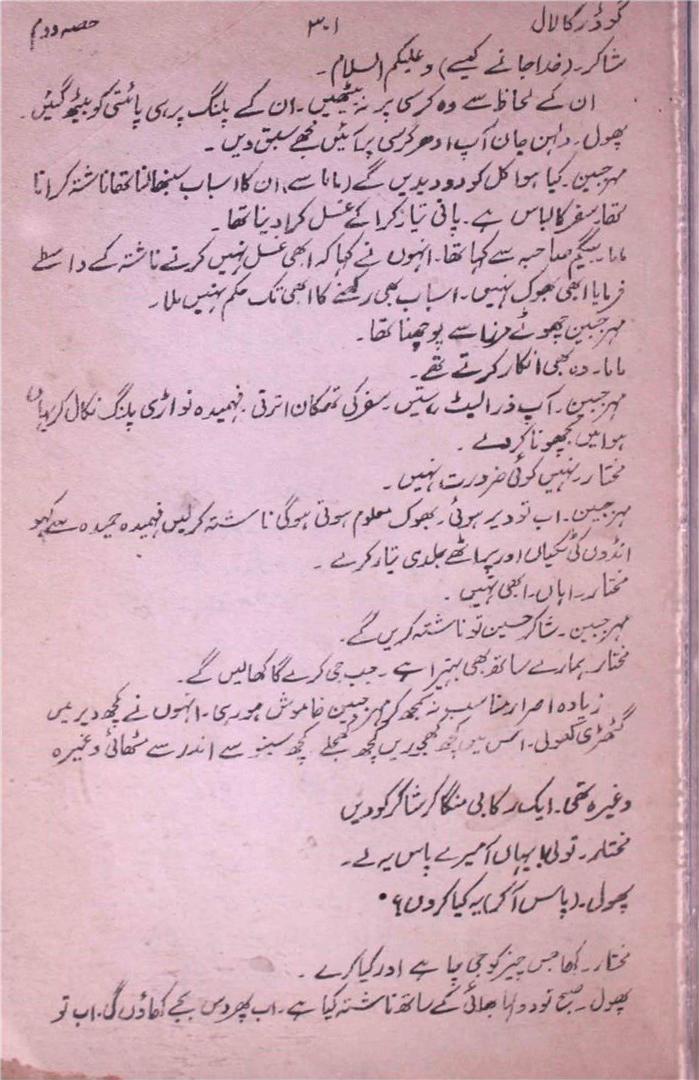 گودڑ کا لال ۳۰۱ حصہ دوم
شاکر۔ (خدا جانے کیسے) وعلیکم السلام۔
ان کے لحاظ سے وہ کرسی پر نہ بیٹھیں۔ ان کے پلنگ پر ہی پائنتی کو بیٹھ گئیں۔
پھول۔ دلہن جان آپ ادھر کرسی پر آئیں مجھے سبق دیں۔
مہرجبین۔ کیا ہوا کل کو دودیدیں گے (ماما سے) ان کا اسباب سنبھالنا تھا ناشتہ کرانا
تھا۔ سفر کا لباس ہے۔ پانی تیار کرا کے غسل کرا دینا تھا۔
ماما۔ بیگم صاحبہ سے کہا تھا۔ انہوں نے کہا کہ ابھی غسل نہیں کرتے ناشتہ کے واسطے
فرمایا ابھی بھوک نہیں۔ اسباب بھی رکھنے کا ابھی تک حکم نہیں ملا۔
مہرجبین۔ چھوٹے مرزا سے پوچھنا تھا۔
ماما۔ وہ بھی انکار کرتے تھے۔
مہرجبین۔ آپ ذرا لیٹ رہتیں۔ سفر کی تھکان اترتی۔ فہمیدہ نواڑی پلنگ نکال کر یہاں
ہوا میں بچھونا کر دے۔
مختار۔ نہیں کوئی ضرورت نہیں۔
مہرجبین۔ اب تو دیر ہوئی۔ بھوک معلوم ہوتی ہوگی ناشتہ کرلیں فہمیدہ حمیدہ سے کہو
انڈوں کی ٹکیاں اور پراٹھے جلدی تیار کرے۔
مختار۔ اہاں۔ ابھی نہیں۔
مہرجبین۔ شاکر حسین تو ناشتہ کریں گے۔
مختار۔ ہمارے ساتھ بھی بہتیرا ہے۔ جب جی کرے گا کھالیں گے۔
زیادہ اصرار مناسب نہ سمجھ کر مہرجبین خاموش ہو رہی۔ انہوں نے کچھ دیر میں
گٹھڑی کھولی۔ اس میں کچھ کھجوریں کچھ کچھ سے اندر سے مٹھائی وغیرہ
وغیرہ تھی۔ ایک رکابی منگا کر شاکر کو دیں
مختار۔ تولی یہاں آ میرے پاس یہ لے۔
پھول۔ (پاس آکر) یہ کیا کروں؟
مختار۔ کھا جس چیز کو جی چاہے اور کیا کرے۔
پھول۔ صبح تو دولہا بھائی کے ساتھ ناشتہ کیا ہے۔ اب پھر دس بجے کھاؤں گی۔ اب تو